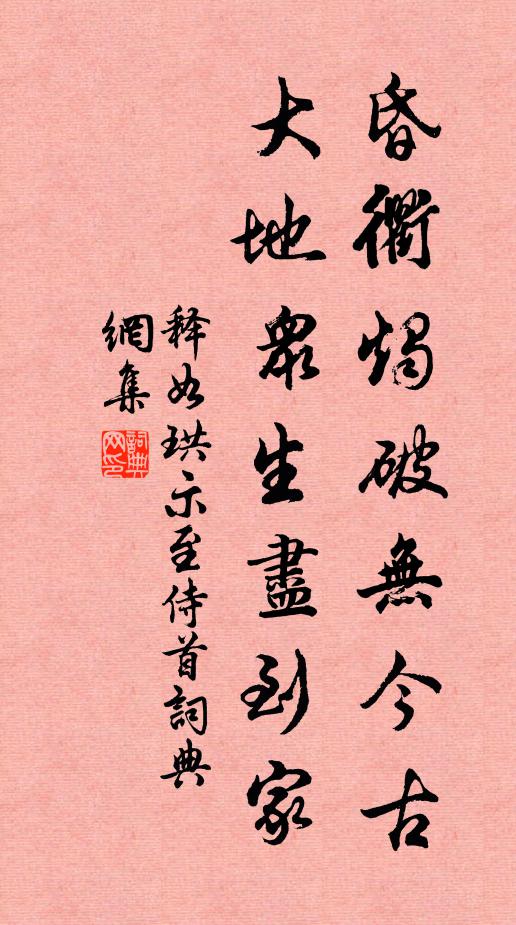 昏衢燭破無今古
大地眾生盡到家
释如珙示至侍首詞典
網集
詞典
网印